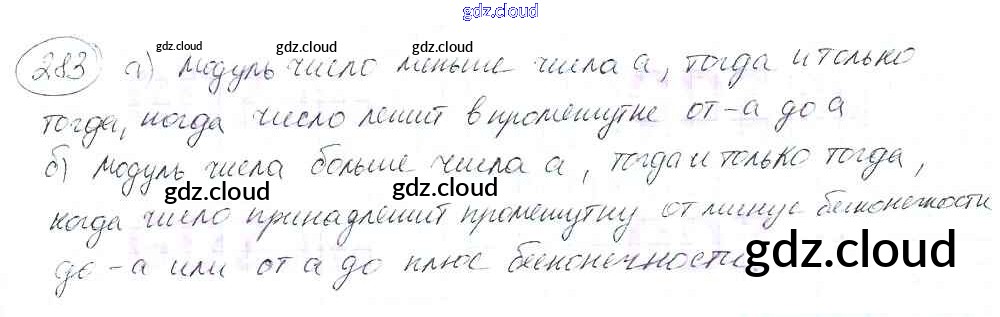 gdz.cloud
gdz.cloud gdz.cloud gdz.cloud
283 а) Модуль число меньше числа а, тогда и только
тогда, когда число лежит в промежутке от -а до а
б) Модуль числа больше числа а, тогда и только тогда,
gdz.cloud gdz.cloud
когда число принадлежит промежутку от минус бесконечности
до -а или от а до плюс бесконечности
gdz.cloud